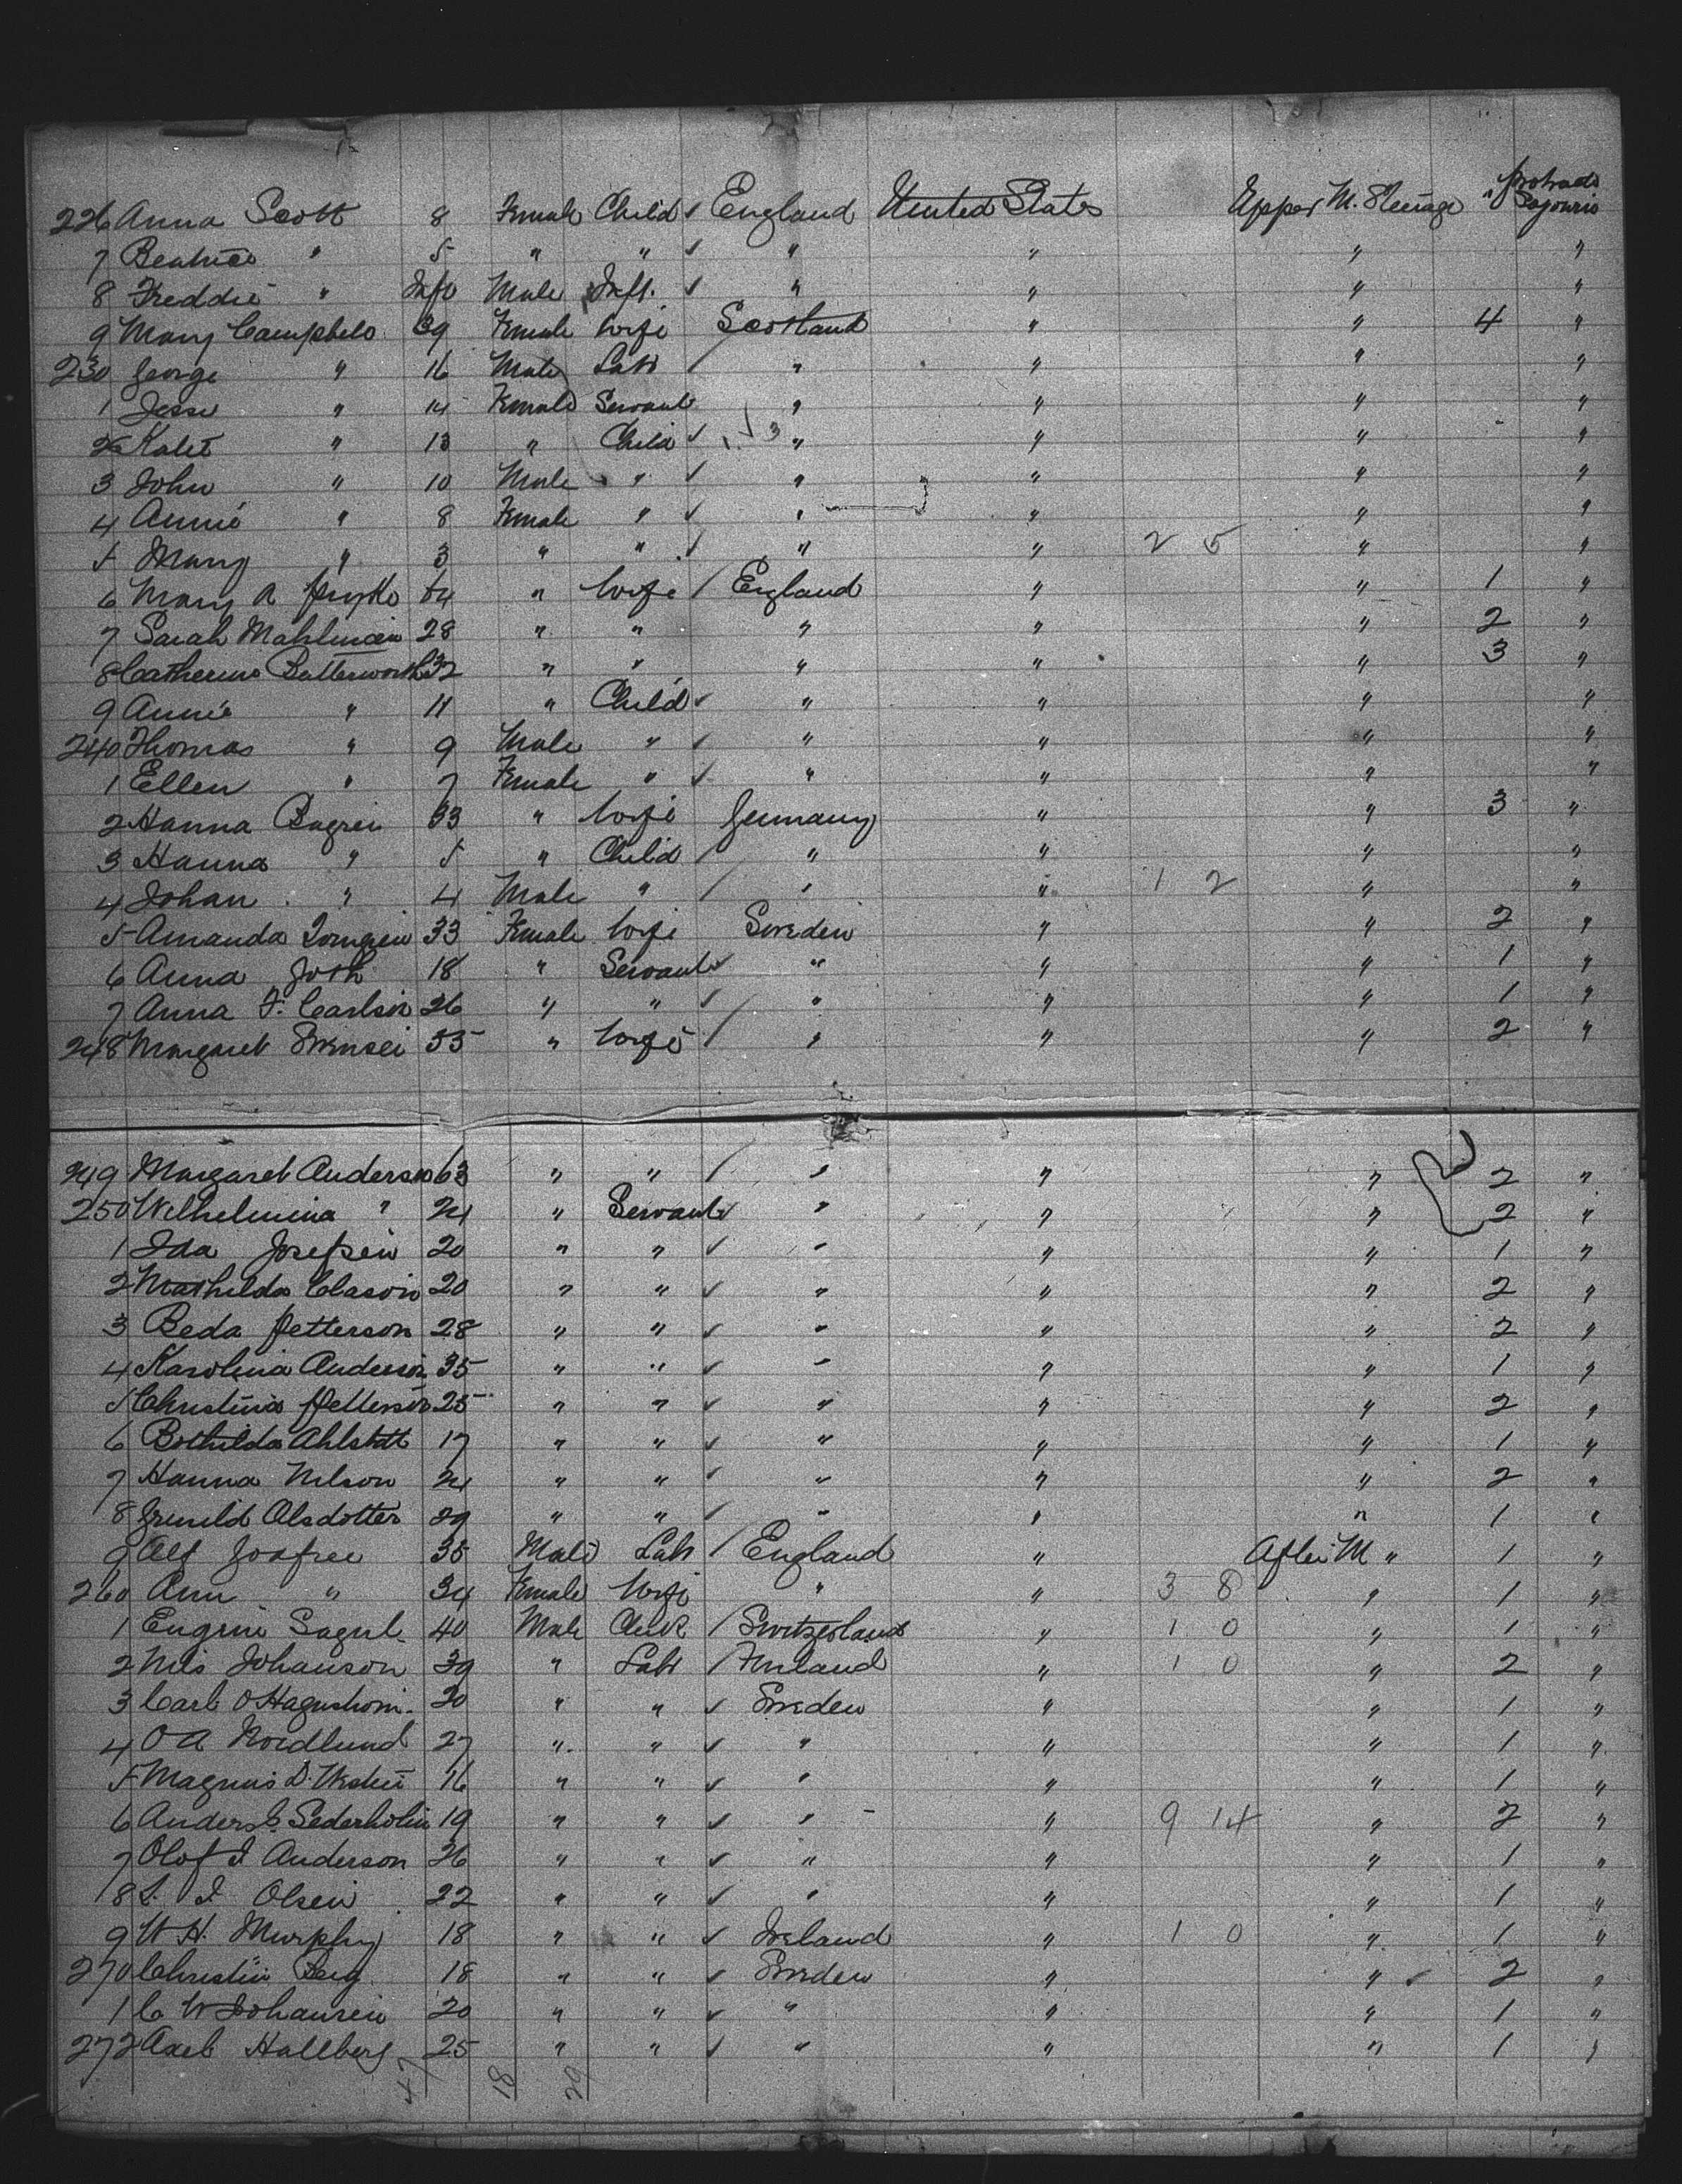 226 Anna Scott 8 Female Child ✓ England United States Upper M. Steerage " Protracted Sojourn
7 Beatrice " 5 " " ✓ " " " "
8 Freddie " Inft Male Inft. ✓ " " " "
9 Mary Campbell 39 Female Wife Scotland " " 4 "
230 George " 16 Male Labr / " " " "
1 Jessie " 14 Female Servant " " " "
2 Kate " 13 " Child ✓ " " " "
3 John " 10 Male " ✓ " " " "
4 Annie " 8 Female " ✓ " " " "
5 Mary " 3 " " ✓ " " 2 5 " "
6 Mary A 54 " Wife / England " " 1 "
7 Sarah 28 " " " " " 2 "
8 Catherine Butterworth 32 " " " " " 3 "
9 Annie " 11 " Child ✓ " " " "
240 Thomas " 9 Male " ✓ " " " "
1 Ellen " 7 Female " ✓ " " " "
2 Hanna 33 " Wife Germany " " 3 "
3 Hanna " 5 " Child / " " " "
4 Johan " 4 Male " / " " 1 2 " "
5 Amanda 33 Female Wife Sweden " " 2 "
6 Anna 18 " Servant ✓ " " " 1 "
7 Anna F. Carlson 26 " " ✓ " " " 1 "
248 Margaret 55 " Wife / " " " 2 "
249 Margaret Anderson 63 " " / " " " 2 "
250 Wilhelmina " 24 " Servant ✓ " " " 2 "
1 Ida Josefsen 20 " " ✓ " " " 1 "
2 Mathilda Clason 20 " " ✓ " " " 2 "
3 Beda Petterson 28 " " ✓ " " " 2 "
4 Karolina Anderson 35 " " ✓ " " " 1 "
5 Christina Petterson 25 " " ✓ " " " 2 "
6 Bothilda 17 " " ✓ " " " 1 "
7 Hanna Nelson 24 " " ✓ " " " 2 "
8 Olsdotter 29 " " / " " " 1 "
9 Alf 35 Male Labr / England " After M " 1 "
260 Ann " 34 Female Wife " " 3 8 " 1 "
1 Eugene 40 Male Clerk / Switzerland " 1 0 " 1 "
2 Nils Johanson 39 " Labr / Finland " 1 0 " 2 "
3 Carl O 20 " " ✓ Sweden " " 1 "
4 O A Nordlund 27 " " ✓ " " " 1 "
5 Magnus D. 16 " " ✓ " " " 1 "
6 Anders G. Sederholm 19 " " ✓ " " 9 14 " 2 "
7 Olof I Anderson 26 " " ✓ " " " 1 "
8 I Olsen 22 " " ✓ " " " 1 "
9 W H. Murphy 18 " " ✓ Ireland " 1 0 " 1 "
270 Berg 18 " " ✓ Sweden " " ✓ 2 "
1 C W Johansen 20 " " ✓ " " " 1 "
272 Axel Hallberg 25 " " ✓ " " " 1 "
47 18 29